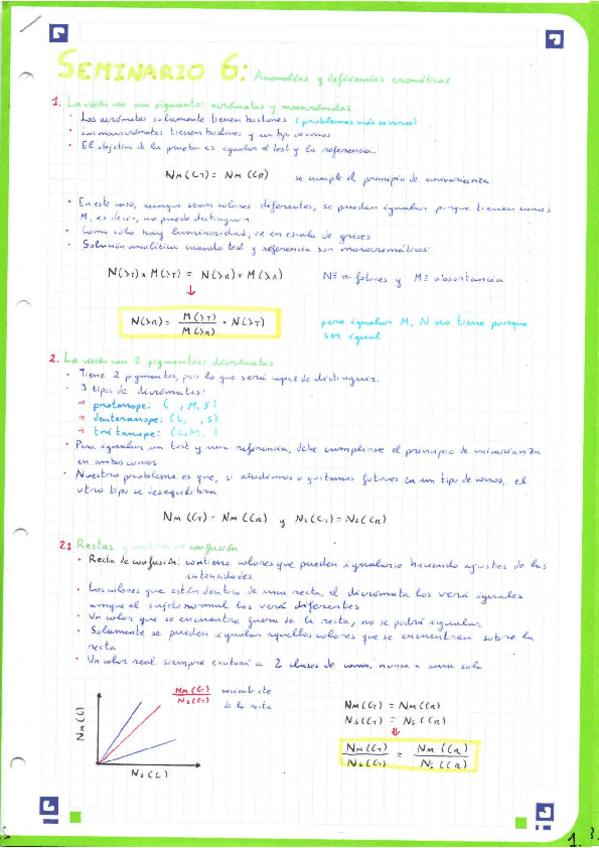 SEMINARIO 6: Anomalías y deficiencias cromáticas
1. La visión con un pigmento: acrómatas y monocrómatas
• Los acrómatas solamente tienen bastones (problemas más severos)
• Los monocrómatas tienen bastones y un tipo de conos
• El objetivo de la prueba es igualar el test y la referencia.
NM (CT) = NM (CR) se cumple el principio de univarianza
• En este caso, aunque sean colores diferentes, se pueden igualar porque tienen conos
M, es decir, no puede distinguir
• Como solo hay luminosidad, ve en escala de grises
• Solución analítica cuando test y referencia son monocromáticos:
N(λT) x M(λT) = N(λR) x M(λR) N≡ nº fotones y M≡ absortancia
↓
N(λR) = M(λT) / M(λR) · N(λT)
para igualar M, N no tiene porque
ser igual
2. La visión con 2 pigmentos: dicrómatas
• Tiene 2 pigmentos, por lo que será capaz de distinguir.
• 3 tipos de dicrómatas:
→ protanope: ( , M, S)
→ deuteranope: (L, , S)
→ tritanope: (L, M, )
• Para igualar un test y una referencia, debe cumplirse el principio de univarianza
en ambos conos
• Nuestro problema es que, si añadimos o quitamos fotones en un tipo de conos, el
otro tipo se desequilibra
NM (CT) = NM (CR) y NS (CT) = NS (CR)
2.1 Rectas y centros de confusión
• Recta de confusión: contiene colores que pueden igualarse haciendo ajustes de las
intensidades
• Los colores que están dentro de una recta, el dicrómata los verá iguales
aunque el sujeto normal los verá diferentes
• Un color que se encuentre fuera de la recta, no se podrá igualar
• Solamente se pueden igualar aquellos colores que se encuentren sobre la
recta
• Un color real siempre excitará a 2 clases de conos, nunca a una sola
NM (C)
NS (C)
NM (CT) / NS (CT)
de la recta
NM (CT) = NM (CR)
NS (CT) = NS (CR)
↓
NM (CT) / NS (CT) = NM (CR) / NS (CR)
1.